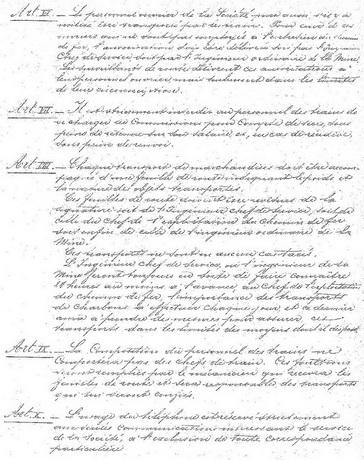 Art. VI. — Le personnel ouvrier de la Société
être transporté par les trains. Pour ceux d'
ouvriers qui ne sont pas employés à l'entretien du chemin
de fer, l'autorisation sera délivrée soit par l'Ingénieur
Chef de service, soit par l'Ingénieur ordinaire de la Mine.
Les surveillants de route délivrent ces autorisations à
leur personnel ouvrier mais seulement dans les limites
de leur circonscription.
Art. VII. — Il est strictement interdit au personnel des trains de
se charger de Commissions pour Compte de tiers, sous
peine de retenue sur son salaire, et, en cas de récidive
sous peine de renvoi.
Art. VIII. — Chaque transport de marchandises doit être accom-
pagné d'une feuille de route indiquant le poids et
la nature des objets transportés.
Ces feuilles de route doivent être revêtues de la
signature soit de l'Ingénieur Chef de Service, soit de
celle du Chef de l'exploitation du Chemin de fer
soit enfin de celle de l'ingénieur ordinaire de la
Mine.
Ces transports ne sont en aucun cas taxés.
L'Ingénieur Chef de Service, ou l'ingénieur de la
Mine feront toujours en sorte de faire connaître
heures au moins à l'avance, au Chef de l'exploitation
du chemin de fer, l'importance des transports
de charbon à effectuer chaque jour et ce dernier
aura à prendre des mesures pour assurer ces
transports dans les limites des moyens dont il dispose.
Art. IX. — La Composition du personnel des trains ne
Comportera pas des chefs de train. Ces fonctions
seront remplies par le mécanicien qui recevra les
feuilles de route et sera responsable des transports
qui lui seront confiés.
Art. X. — L'usage du téléphone est réservé strictement
aux seules communications intéressant le service
de la Société, à l'exclusion de toute correspondance
particulière